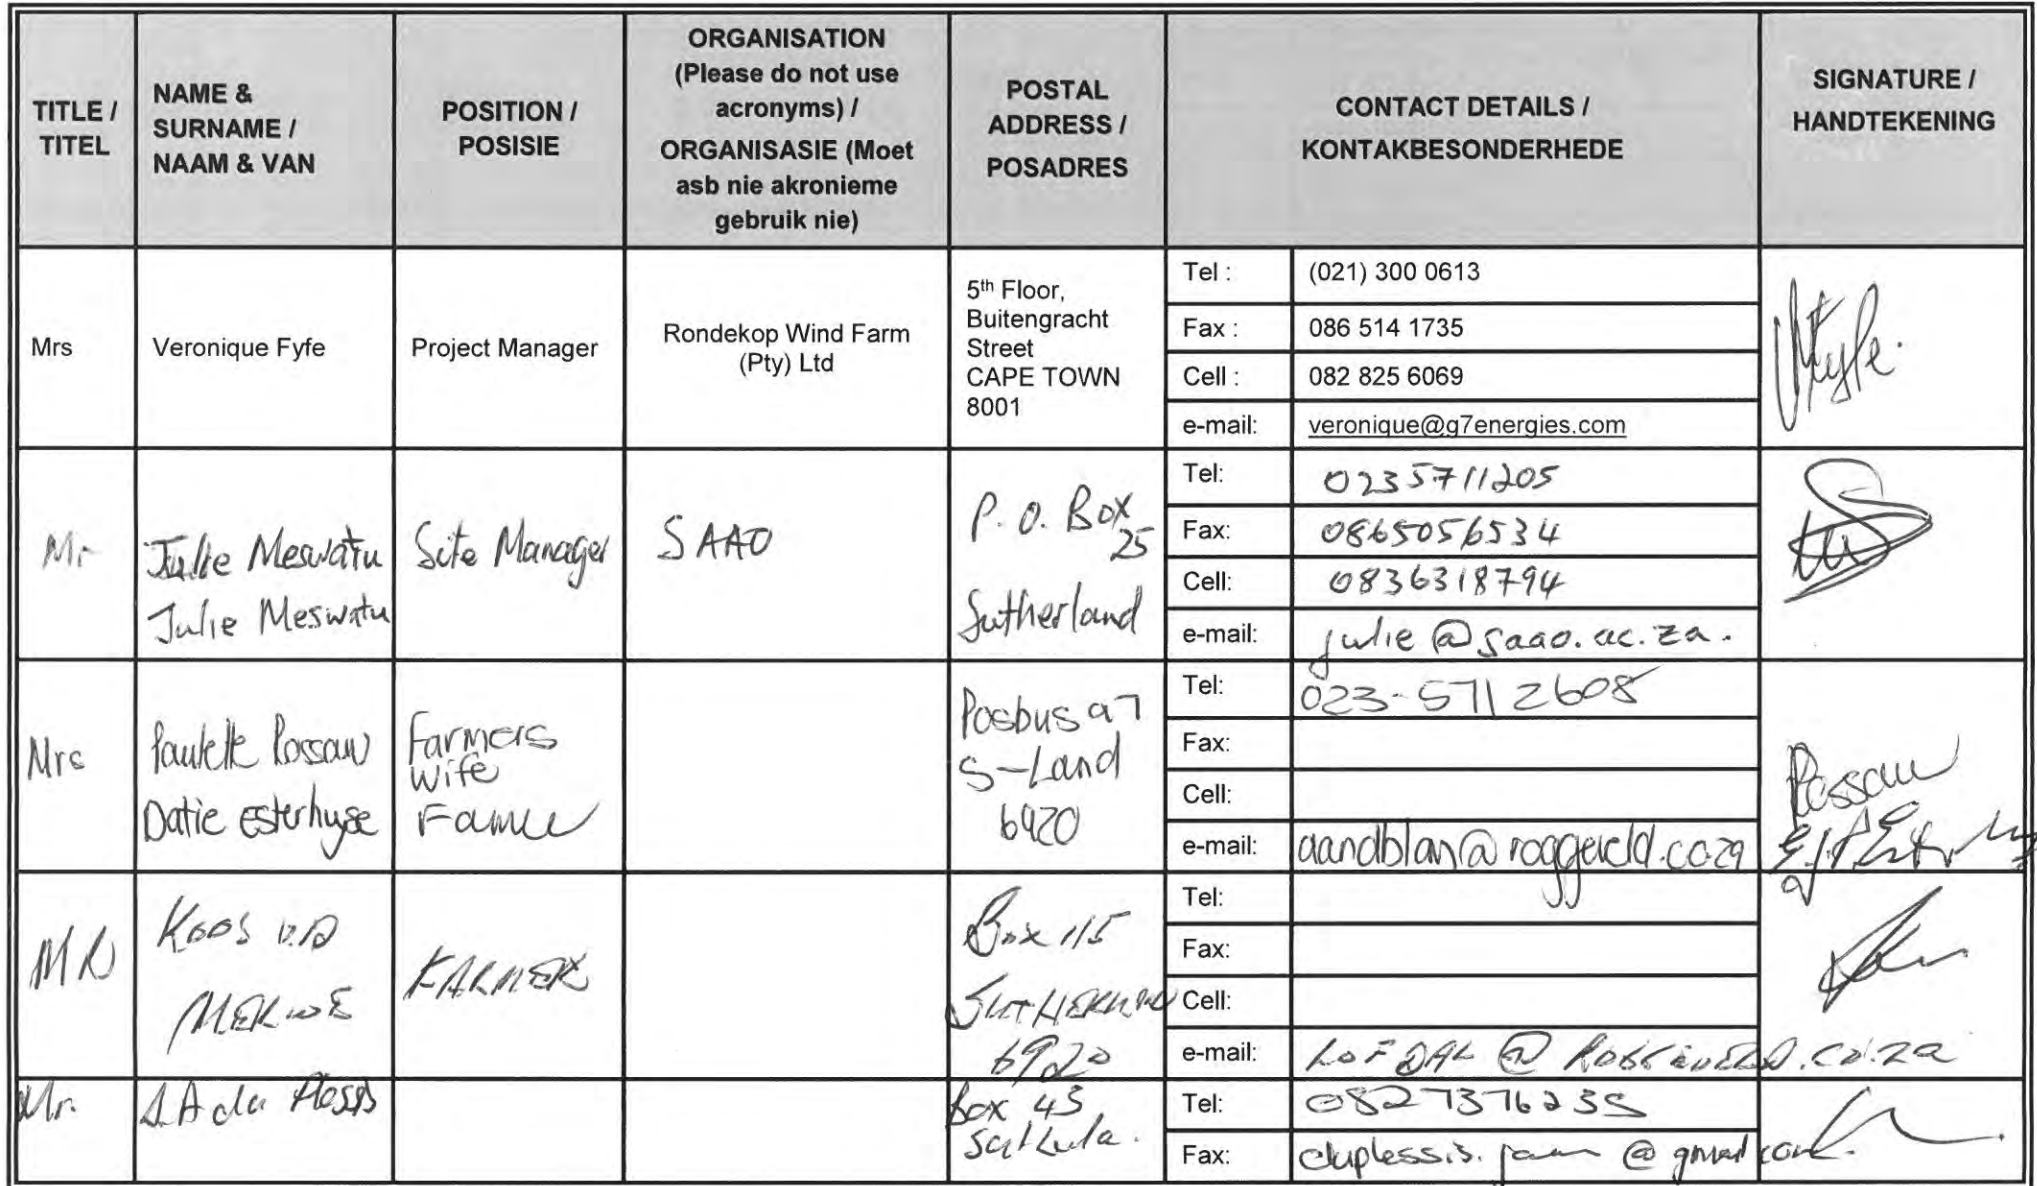 TITLE /
TITEL
NAME &
SURNAME /
NAAM & VAN
POSITION /
POSISIE
ORGANISATION
(Please do not use
acronyms) /
ORGANISASIE (Moet
asb nie akronieme
gebruik nie)
POSTAL
ADDRESS /
POSADRES
CONTACT DETAILS /
KONTAKBESONDERHEDE
SIGNATURE /
HANDTEKENING
Mrs
Veronique Fyfe
Project Manager
Rondekop Wind Farm
(Pty) Ltd
5th Floor,
Buitengracht
Street
CAPE TOWN
8001
Tel : (021) 300 0613
Fax : 086 514 1735
Cell : 082 825 6069
e-mail: veronique@g7energies.com
VFyfe.
Mr
Julie Meswatu
Julie Meswatu
Site Manager
SAAO
P.O. Box
25
Sutherland
Tel: 0235711205
Fax: 0865056534
Cell: 0836318794
e-mail: julie@saao.ac.za.
Mrs
Paulette Possau
Datie esterhuyse
Farmers
Wife
Posbus 97
S-Land
6920
Tel: 023-5712608
Fax:
Cell:
e-mail: aandblan@roggeveld.co.za
Possau
MR
KOOS V.D
MERWE
FARMER
Box 115
SUTHERLAND
6920
Tel:
Fax:
Cell:
e-mail: LOFDAL@ROGGEVELD.CO.ZA
Mr.
du Plessis
Box 43
Tel: 0827376235
Fax: duplessis. @gmail.com.